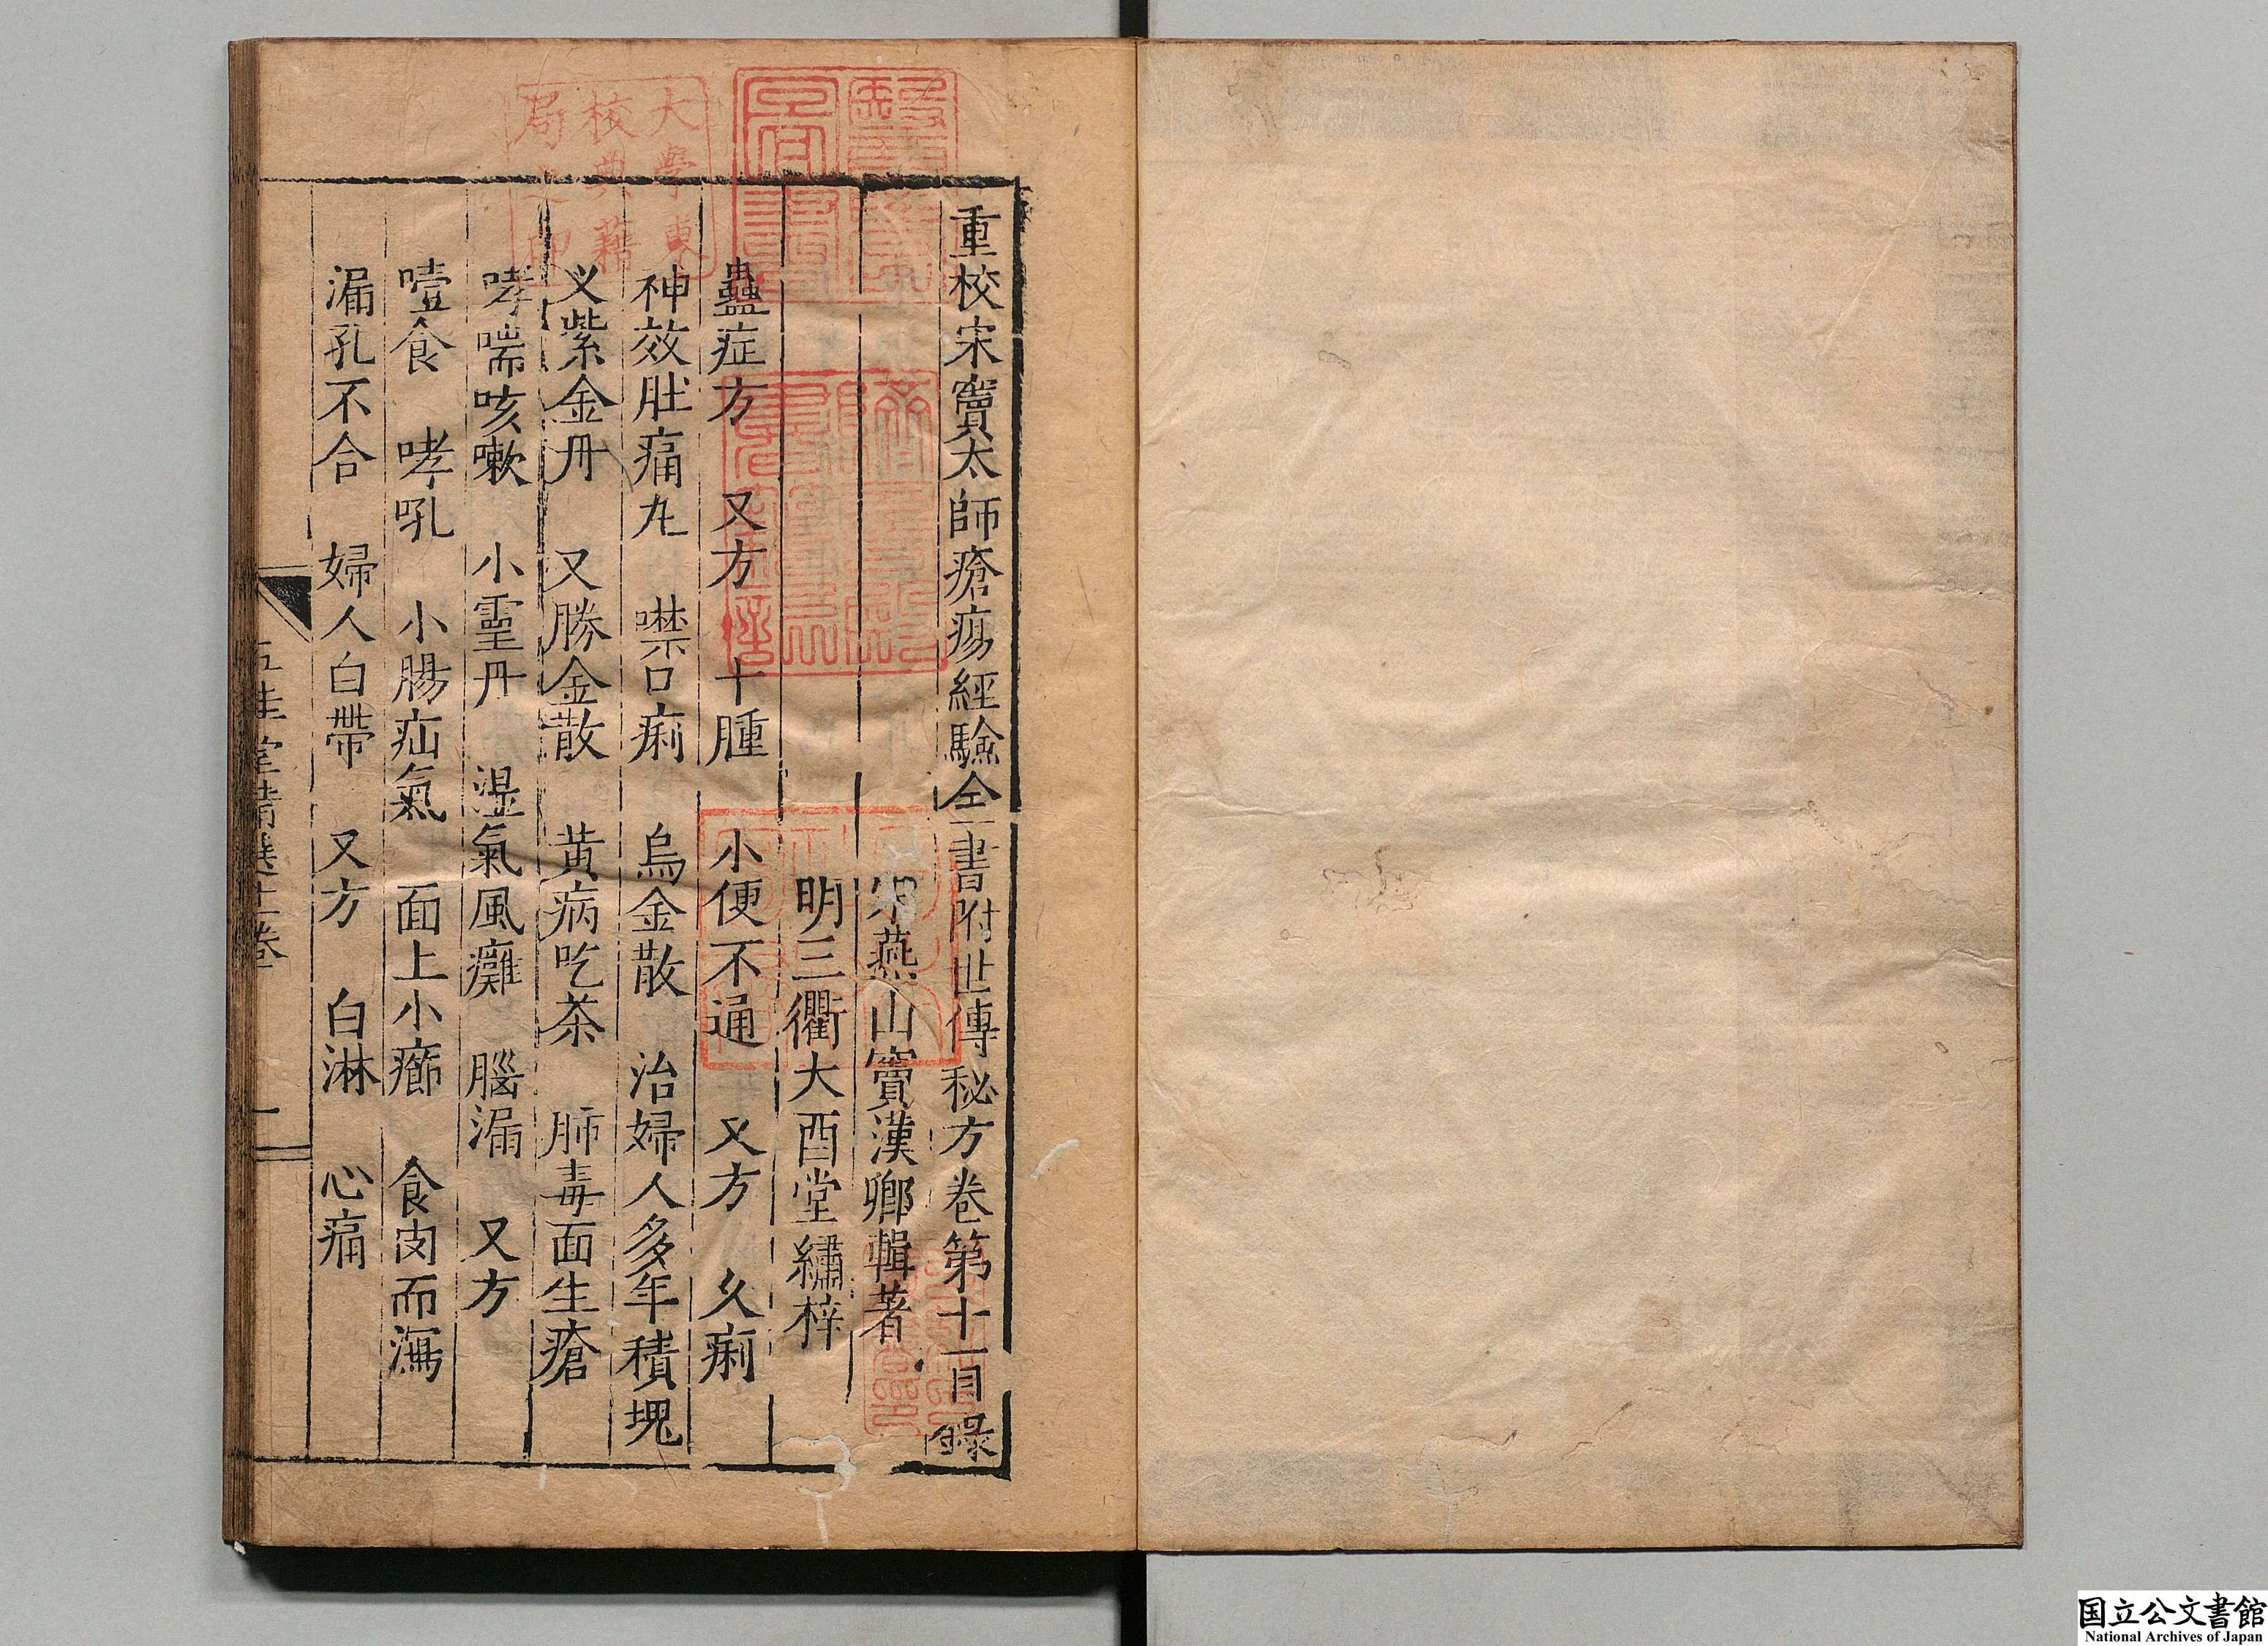 重校宋竇太師瘡瘍經驗全書附世傳秘方卷第十一目錄
宋燕山竇漢卿輯著
明三衢大酉堂繡梓
蠱症方　又方　十腫　小便不通　又方　久痢
神效肚痛丸　噤口痢　烏金散　治婦人多年積塊
又紫金丹　又勝金散　黃病吃茶　肺毒面生瘡
哮喘咳嗽　小靈丹　濕氣風癱　腦漏　又方
噎食　哮吼　小腸疝氣　面上小癤　食肉而瀉
漏孔不合　婦人白帶　又方　白淋　心痛
大學東
校典籍
局之印
国立公文書館
National Archives of Japan